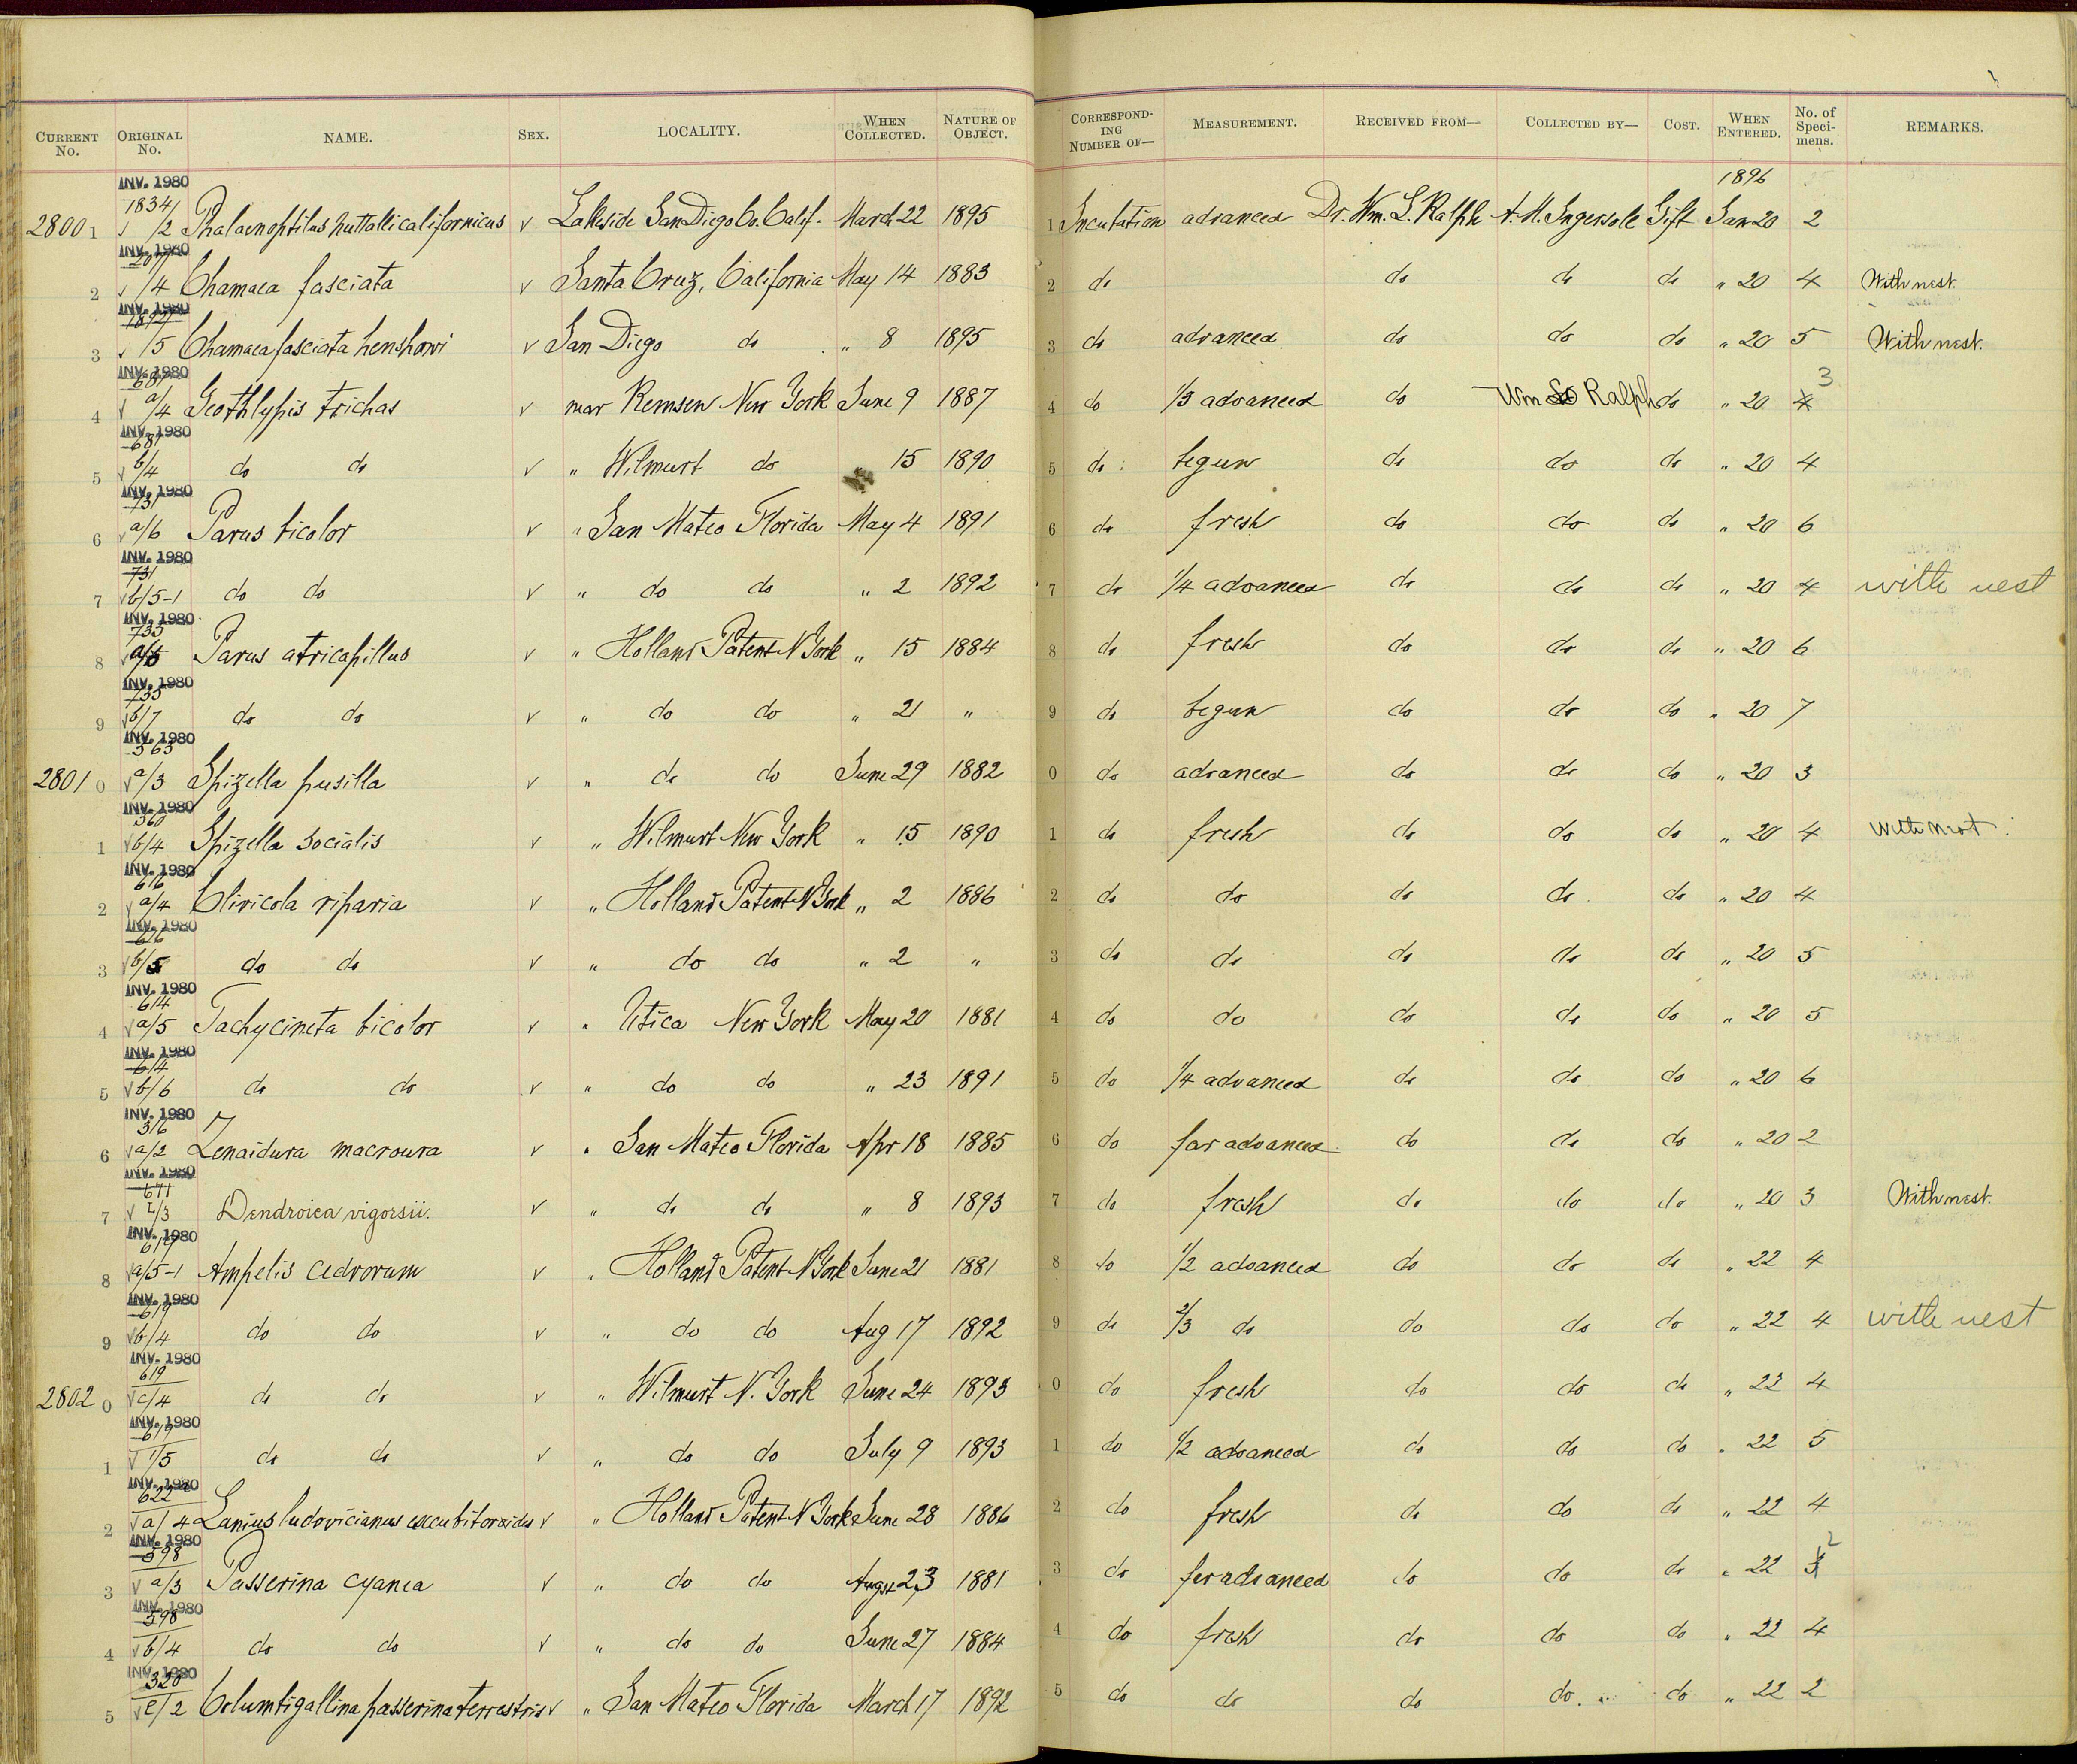 CURRENT No. ORIGINAL No. NAME. SEX. LOCALITY. WHEN COLLECTED. NATURE OF OBJECT. CORRESPONDING NUMBER OF— MEASUREMENT. RECEIVED FROM— COLLECTED BY— COST. WHEN ENTERED. No. of Specimens. REMARKS.
INV. 1980 1896
28001 1834/2 Phalaenoptilus nuttalli californicus v Lakeside San Diego Co. Calif. March 22 1895 1 Incubation advanced Dr. Wm. L. Ralph A. M. Ingersoll Gift Jan 20 2
INV. 1980
2 /4 Chamaea fasciata v Santa Cruz, California May 14 1883 2 do do do do " 20 4 With nest.
INV. 1980
3 /5 Chamaea fasciata henshawi v San Diego do " 8 1895 3 do advanced do do do " 20 5 With nest.
INV. 1980
4 681 a/4 Geothlypis trichas v near Remsen New York June 9 1887 4 do 1/3 advanced do Wm L Ralph do " 20 4 3
INV. 1980
5 681 b/4 do do v " Wilmurt do 15 1890 5 do begun do do do " 20 4
INV. 1980
6 731 a/6 Parus bicolor v " San Mateo Florida May 4 1891 6 do fresh do do do " 20 6
INV. 1980
7 731 b/5-1 do do v " do do " 2 1892 7 do 1/4 advanced do do do " 20 4 with nest
INV. 1980
8 735 a/ Parus atricapillus v " Holland Patent N York " 15 1884 8 do fresh do do do " 20 6
INV. 1980
9 735 b/7 do do v " do do " 21 " 9 do begun do do do " 20 7
INV. 1980
28010 563 a/3 Spizella pusilla v " do do June 29 1882 0 do advanced do do do " 20 3
INV. 1980
1 560 b/4 Spizella socialis v " Wilmurt New York " 15 1890 1 do fresh do do do " 20 4 with nest.
INV. 1980
2 616 a/4 Clivicola riparia v " Holland Patent N York " 2 1886 2 do do do do do " 20 4
INV. 1980
3 616 b/5 do do v " do do " 2 " 3 do do do do do " 20 5
INV. 1980
4 614 a/5 Tachycineta bicolor v " Utica New York May 20 1881 4 do do do do do " 20 5
INV. 1980
5 614 b/6 do do v " do do " 23 1891 5 do 1/4 advanced do do do " 20 6
INV. 1980
6 316 a/2 Zenaidura macroura v " San Mateo Florida Apr 18 1885 6 do far advanced do do do " 20 2
INV. 1980
7 671 /3 Dendroica vigorsii. v " do do " 8 1893 7 do fresh do do do " 20 3 With nest.
INV. 1980
8 619 a/5-1 Ampelis cedrorum v " Holland Patent N York June 21 1881 8 do 1/2 advanced do do do " 22 4
INV. 1980
9 619 b/4 do do v " do do Aug 17 1892 9 do 2/3 do do do do " 22 4 with nest
INV. 1980
28020 619 c/4 do do v " Wilmurt N. York June 24 1893 0 do fresh do do do " 22 4
INV. 1980
1 619 /5 do do v " do do July 9 1893 1 do 1/2 advanced do do do " 22 5
INV. 1980
2 622a a/4 Lanius ludovicianus excubitoroides v " Holland Patent N York June 28 1886 2 do fresh do do do " 22 4
INV. 1980
3 598 a/3 Passerina cyanea v " do do August 23 1881 3 do far advanced do do do " 22 3 2
INV. 1980
4 598 b/4 do do v " do do June 27 1884 4 do fresh do do do " 22 4
INV. 1980
5 320 e/2 Columbigallina passerina terrestris v " San Mateo Florida March 17 1892 5 do do do do. do " 22 2